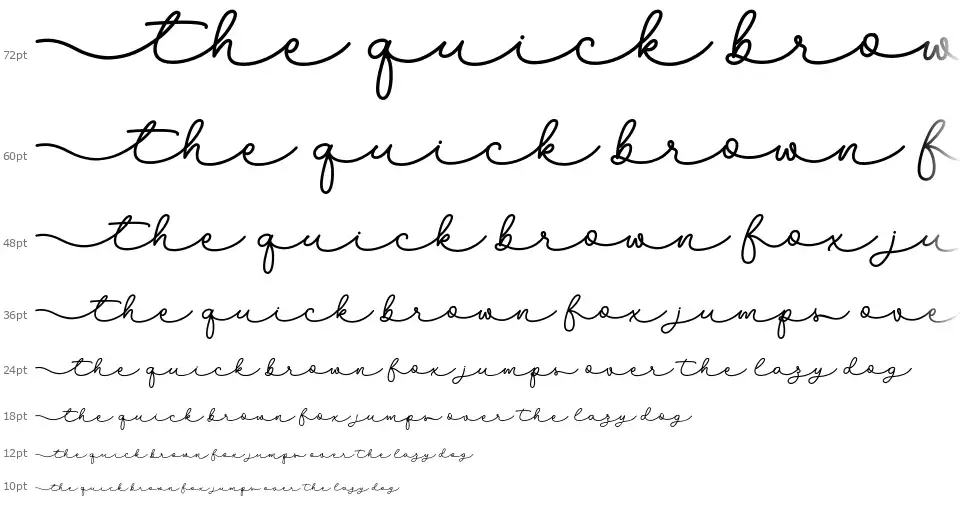 72pt the quick brow
60pt the quick brown f
48pt the quick brown fox ju
36pt the quick brown fox jumps ove
24pt the quick brown fox jumps over the lazy dog
18pt the quick brown fox jumps over the lazy dog
12pt the quick brown fox jumps over the lazy dog
10pt the quick brown fox jumps over the lazy dog